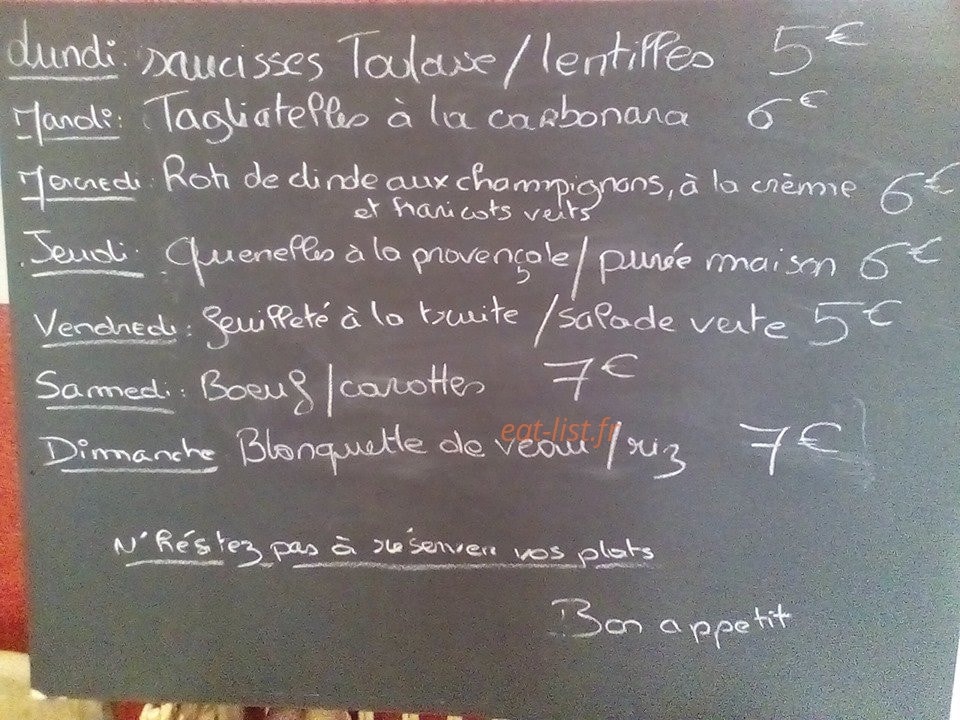 Lundi: saucisses Toulouse/lentilles 5€
Mardi: Tagliatelles à la carbonara 6€
Mercredi: Roti de dinde aux champignons, à la crème 6€
et haricots verts
Jeudi: Quenelles à la provençale/purée maison 6€
Vendredi: feuilleté à la truite/salade verte 5€
Samedi: Boeuf/carottes 7€
Dimanche Blanquette de veau/riz 7€
eat-list.fr
N'Hésitez pas à réserver vos plats
Bon appetit